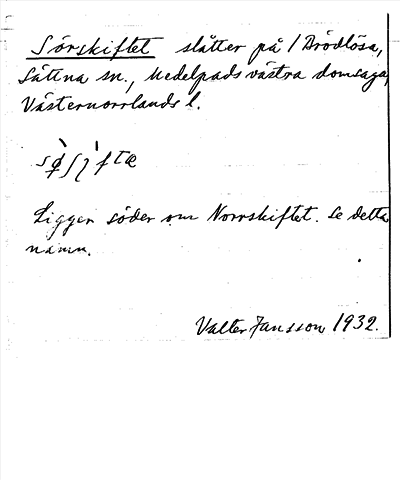 Sörskiftet slåtter på / Brödlösa,
Sättna sn., Medelpads västra domsaga,
Västernorrlands l.
Ligger söder om Norrskiftet. Se detta
namn.
Valter Jansson 1932.